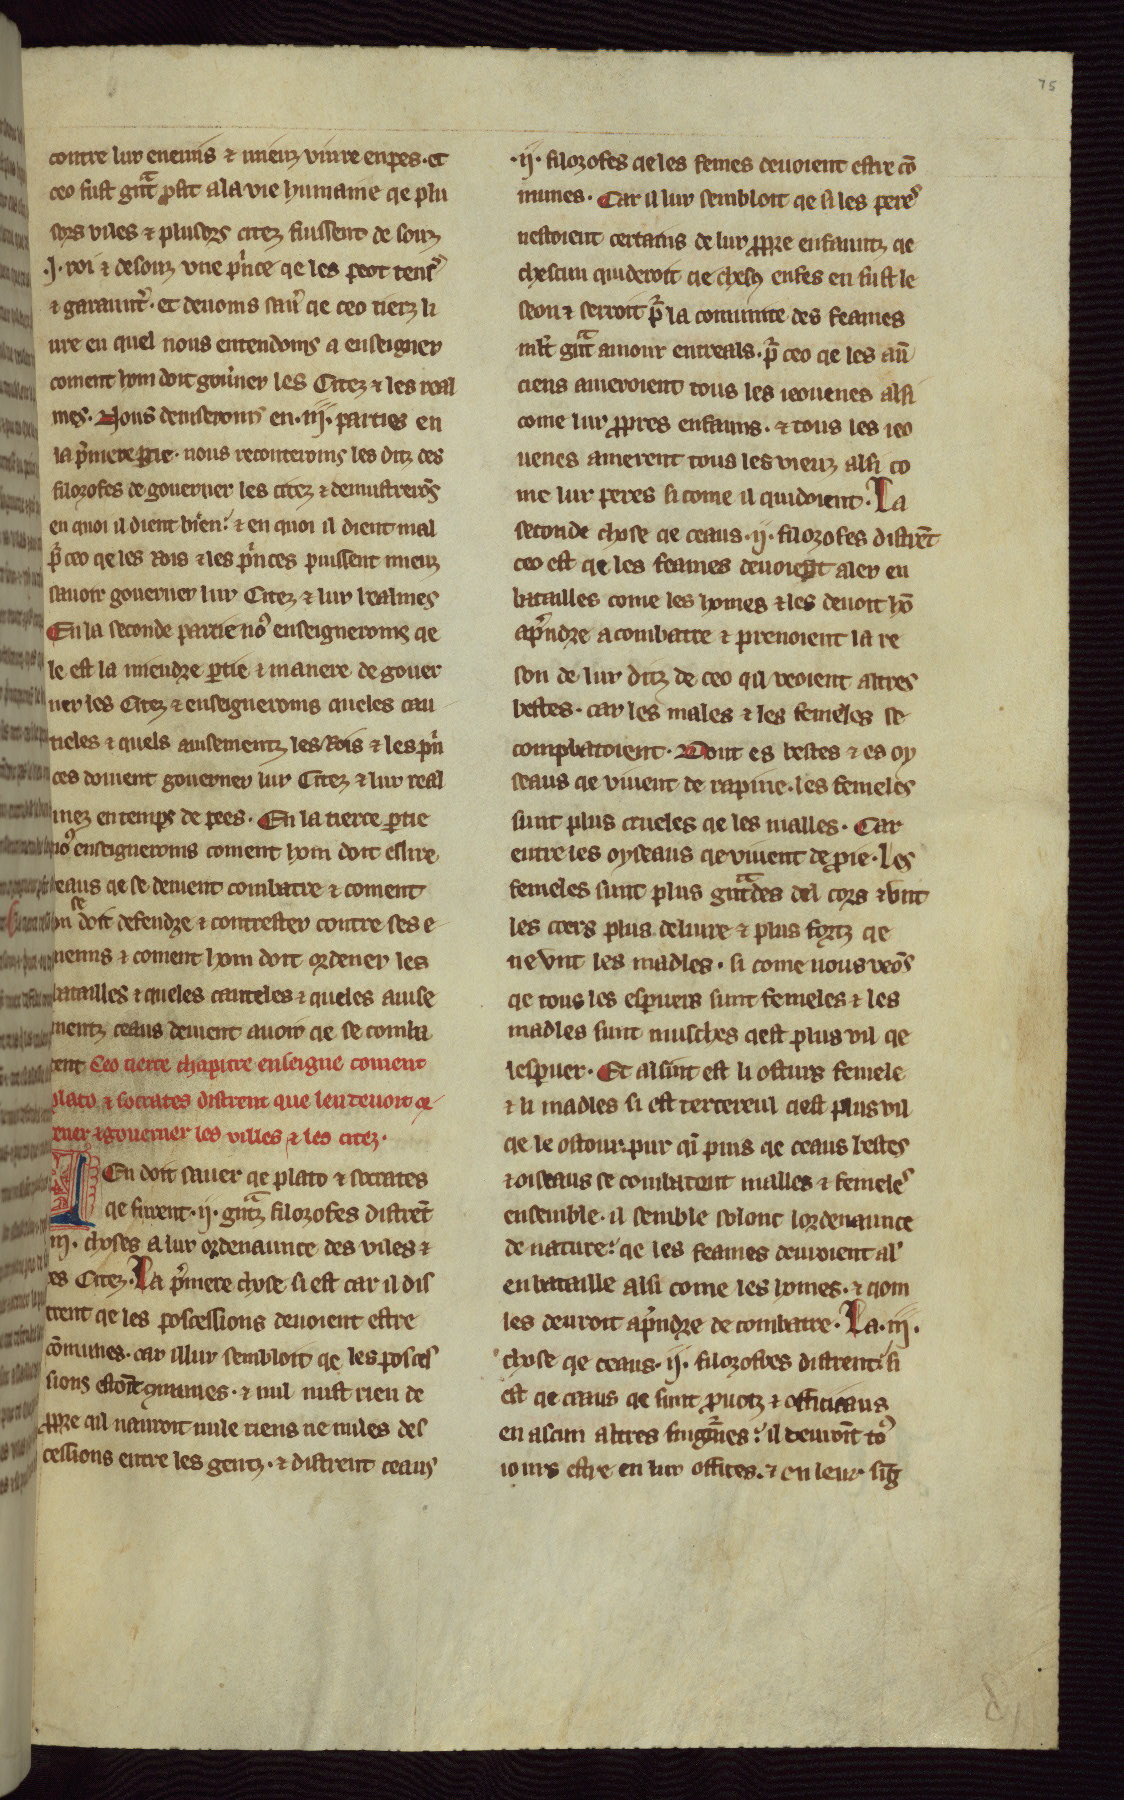 75
contre lur enemis & mieuz viure en pes. et
ceo fust gͣnt ꝓfit a la vie humaine qe plu
sors viles & plusors citez fussent de souz
.j. roi & desouz vne pͥnce qe les peot tenir̕
& garantir̕. et deuoms sau̕ qe ceo tierz li
ure en quel nous entendoms a enseigner
coment hom doit gou̕ner les Citez & les real
mes. Nous deuiseroms en .iij. parties en
la pͥmere ꝑtie. nous reconteroms les ditz des
filozofes de gouerner les citez & demustrerōs
en quoi il dient bien: & en quoi il dient mal
ꝑ̄ ceo qe les Rois & les pͥnces puissent mieuz
sauoir gouerner lur Citez & lur realmes
En la seconde partie noꝰ enseigneroms qe
le est la miendre ꝑtie & manere de gouer
ner les Citez & enseigneroms queles cau
teles & quels auisementz les Rois & les pͥn
ces doiuent gouerner lur Citez & lur real
mez en temps de pees. En la tierce ꝑtie
noꝰ enseigneroms coment hom doit eslire
ceaus qe se deiuent combatre & coment
hom se doit defendre & contrester contre ses e
nemis & coment hom doit ordener les
batailles & queles cauteles & queles auise
mentz ceaus deiuent auoir qe se comba
tent Ceo tierce chapitre enseigne coment
plato & socrates distrent que leu deuoit or
dener & gouerner les villes & les citez.
L En doit sauer qe plato & socrates
qe furent .ij. gͣntz filozofes distrēt
.iij. choses a lur ordenaunce des viles &
des Citez. La pͥmere chose si est car il dis
trent qe les possessions deuoient estre
cōmunes. car il lur sembloit qe les posses
sions estoīēt ꝯmunes. & nul nust rien de
ꝓpre qil nauroit nule riens ne nules des
cessions entre les gentz. & distrent ceaus
.ij. filozofes qe les femes deuoient estre cō
munes. Car il lur sembloit qe si les peres
nestoient certains de lur ꝓpre enfauntz qe
chescun quideroit qe chescꝰ enfes en fust le
seon & serroit ꝑ̄ la comunite des feames
ml̄t gͣnt amour entre als. ꝑ̄ ceo qe les aū
ciens ameroient tous les ieouenes alsi
come lur ꝓpres enfauns. & tous les ieo
uenes amerent tous les vieuz alsi co
me lur peres si come il quidoient. La
seconde chose qe ceaus .ij. filozofes distrēt
ceo est qe les feames deuoient aler en
batailles come les homes & les deuoit hō
apͥndre a combatre & prenoient la re
son de lur ditz de ceo qil veoient altres
bestes. car les males & les femeles se
compbatoient. Dont es bestes & es oy
seaus qe viuent de rapine. les femeles
sunt plus crueles qe les malles. Car
entre les oyseaus qe viuent de ꝓie. les
femeles sunt plus gͣntdes del cors & vnt
les coers plus deliure & plus fortz qe
ne vnt les madles. si come nous veōs
qe tous les esꝑuers sunt femeles & les
madles sunt musches qest plus vil qe
lesꝑuer. Et alsint est li osturs femele
& li madles si est tertereul qest plus vil
qe le ostour. pur qͥ puis qe ceaus bestes
& oiseaus se combatent malles & femeles
ensemble. il semble solonc lordenaunce
de nature: qe les feames deuroient al̕
en bataille alsi come les homes. & qom
les deuroit apͥndre de combatre. La .iij.
chose qe ceaus .ij. filozofes distrent si
est qe ceaus qe sunt ꝓuotz & officiaus
en alcun altres seignͬies: il deuroīt toꝰ
iours estre en lur offices. & en leur sēg